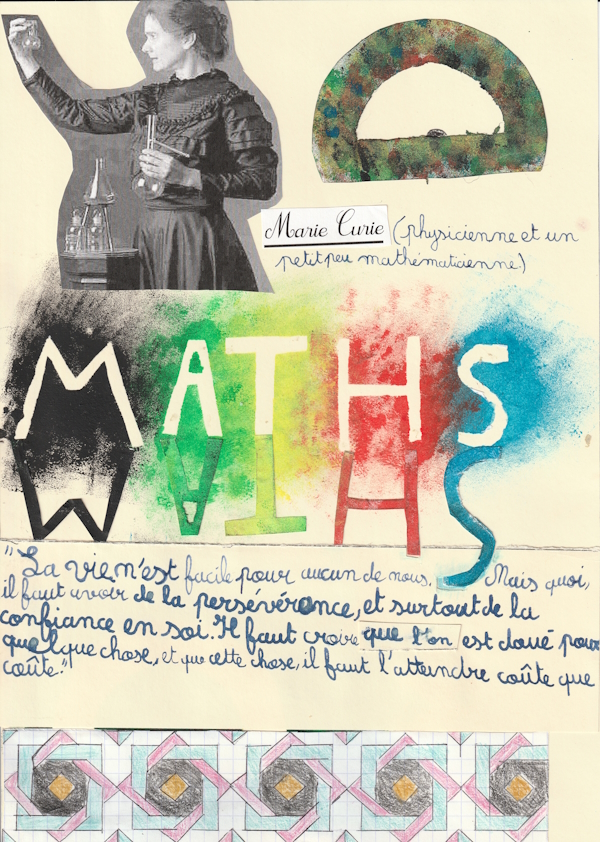 Marie Curie (physicienne et un
petit peu mathématicienne)
MATHS
MATHS
"La vie n'est facile pour aucun de nous. Mais quoi,
il faut avoir de la persévérence, et surtout de la
confiance en soi. Il faut croire que l'on est doué pour
quelque chose, et que cette chose, il faut l'atteindre coûte que
coûte."